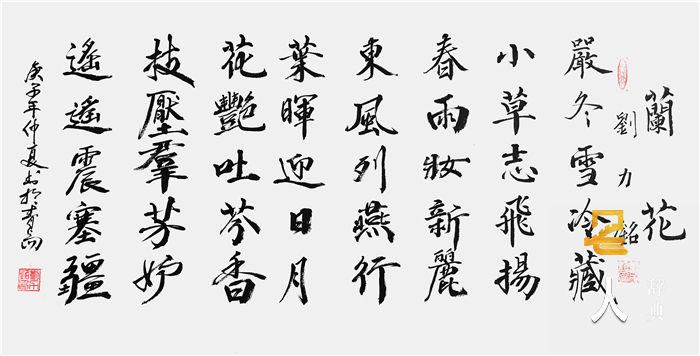 蘭花
劉力銘
嚴冬雪冷藏
小草志飛揚
春雨妝新麗
東風列燕行
葉暉迎日月
花豔吐芬香
枝壓羣芳妒
遙遙震塞疆
庚子年仲夏书於青島
名人
辭典